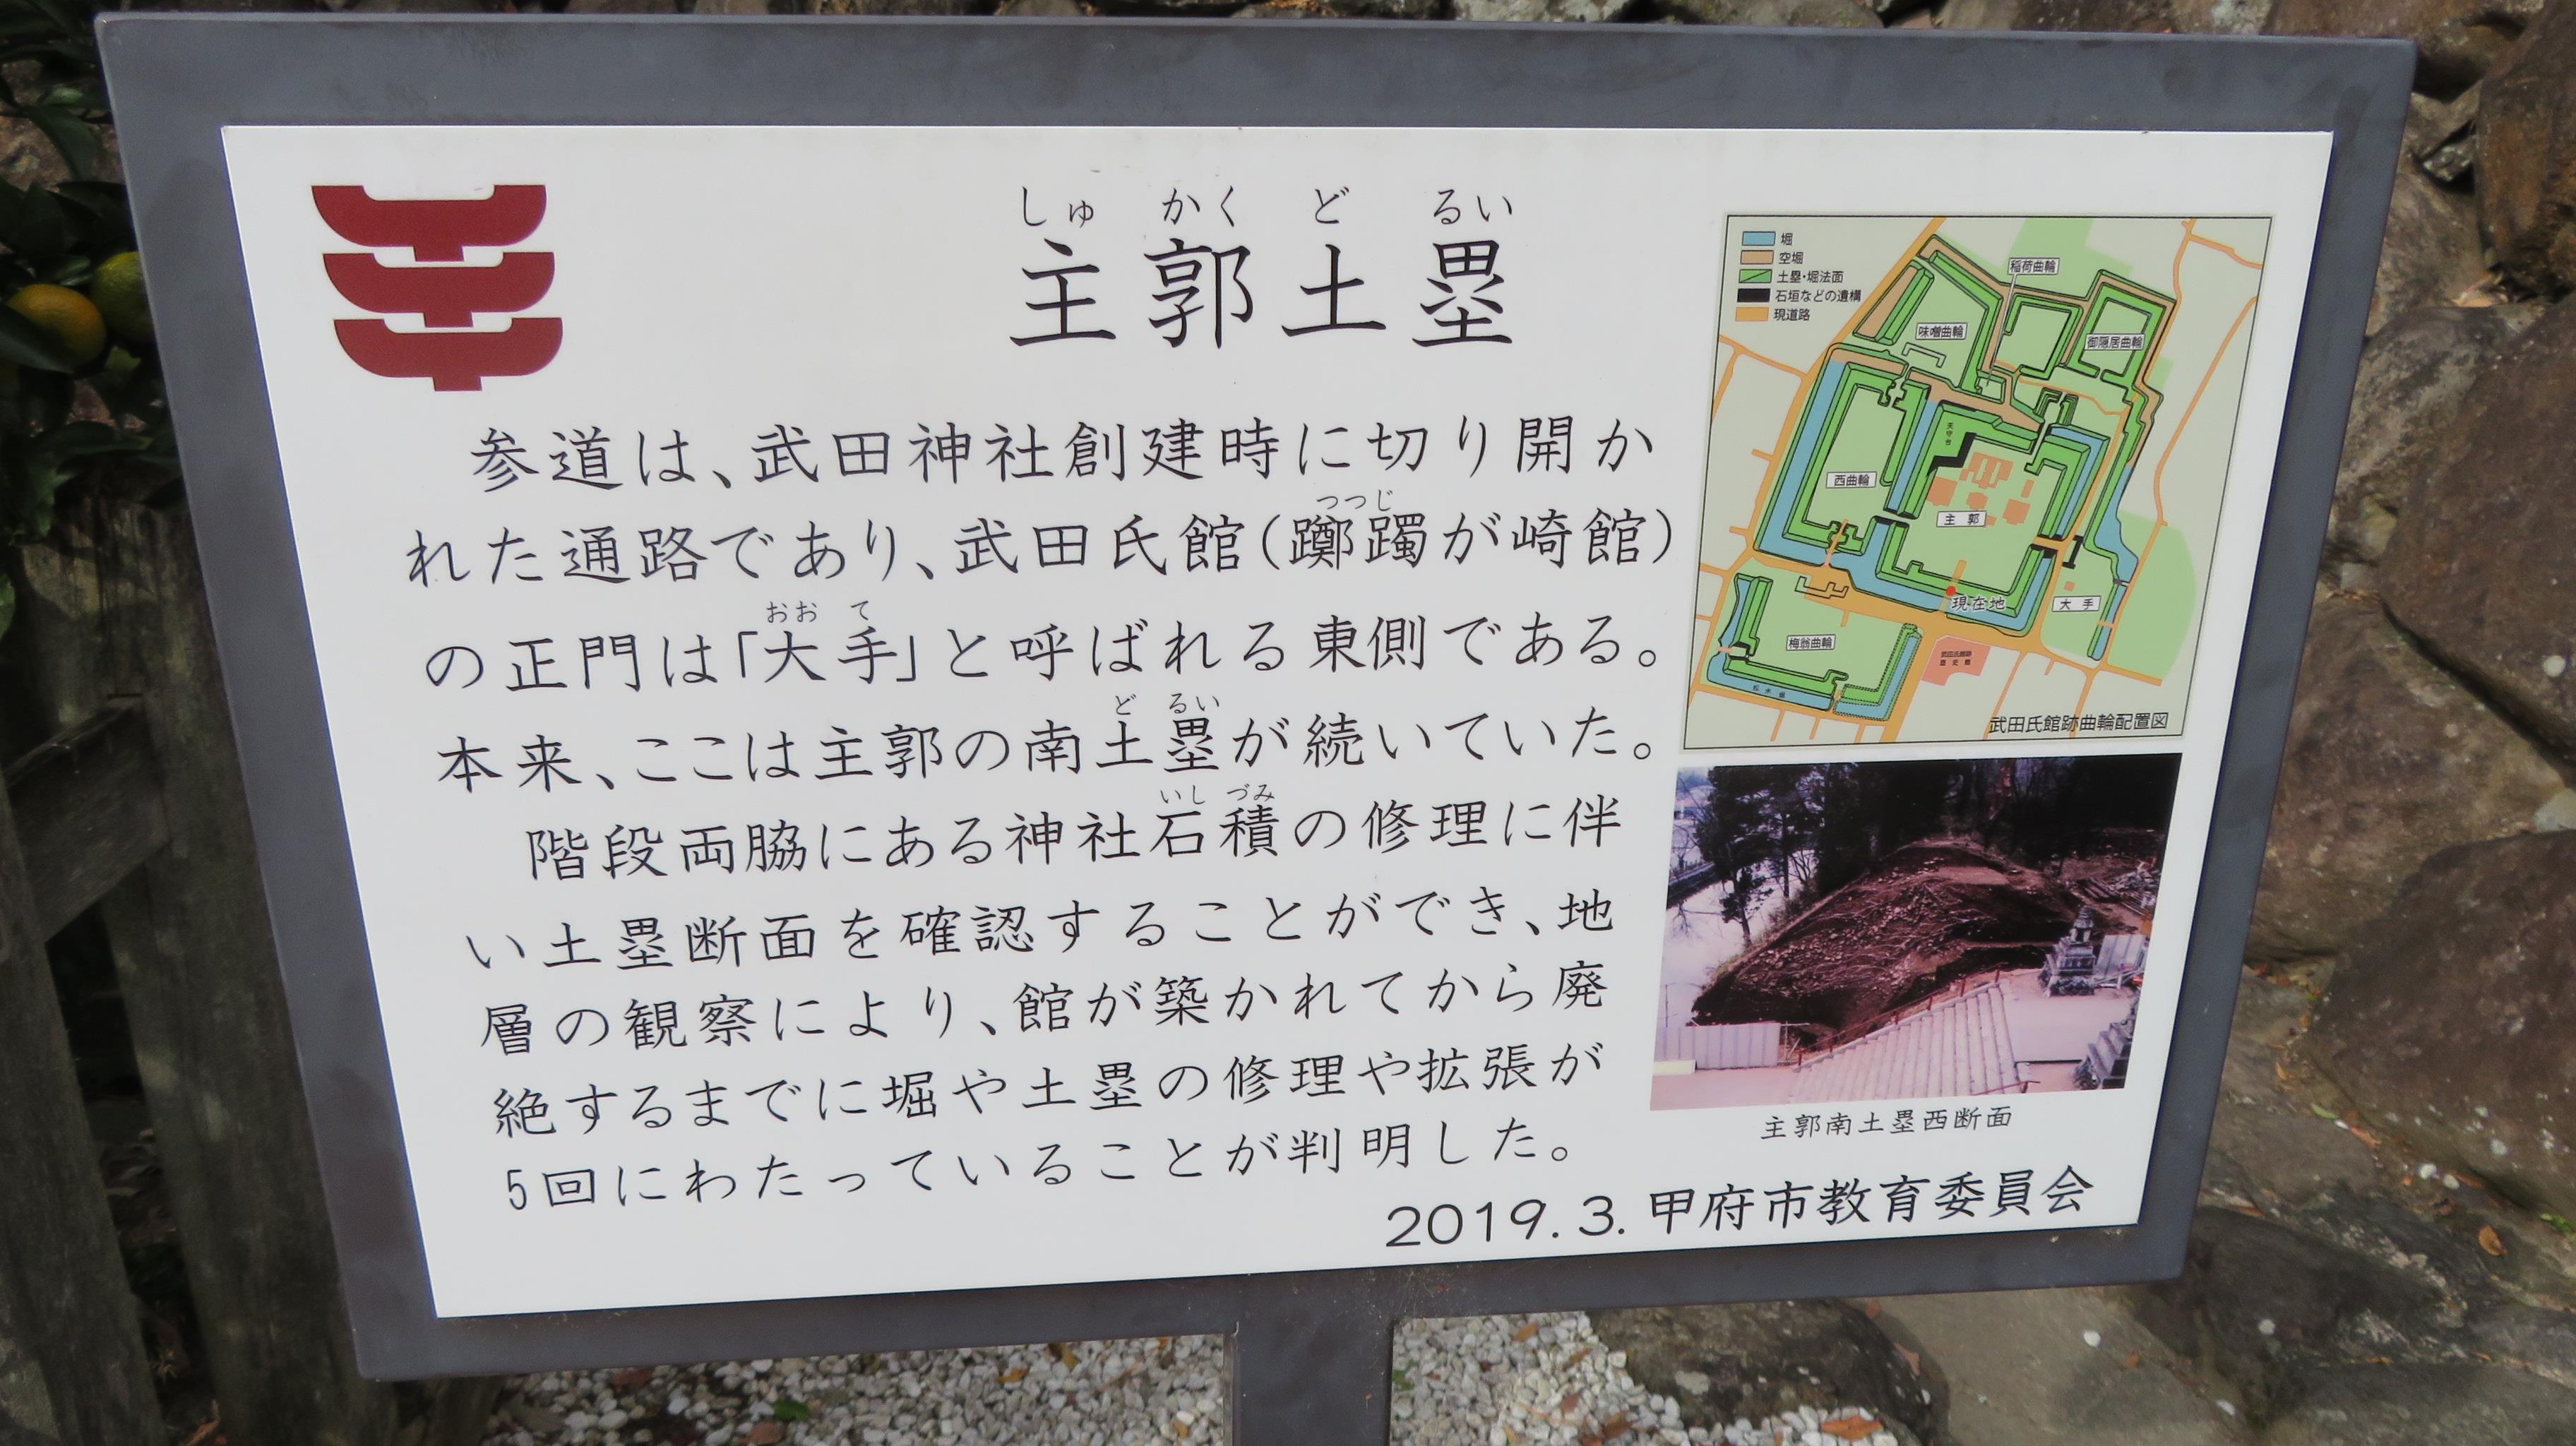 しゅ かく ど るい
主郭土塁
参道は、武田神社創建時に切り開か
れた通路であり、武田氏館(躑躅が崎館)
つつじ
の正門は「大手」と呼ばれる東側である。
おお て
本来、ここは主郭の南土塁が続いていた。
ど るい
階段両脇にある神社石積の修理に伴
いし づみ
い土塁断面を確認することができ、地
層の観察により、館が築かれてから廃
絶するまでに堀や土塁の修理や拡張が
5回にわたっていることが判明した。
2019.3. 甲府市教育委員会
堀
空堀
土塁・堀法面
石垣などの遺構
現道路
稲荷曲輪
味噌曲輪
御隠居曲輪
天守台
西曲輪
主郭
現在地
大手
梅翁曲輪
松木堀
武田氏館跡曲輪配置図
主郭南土塁西断面